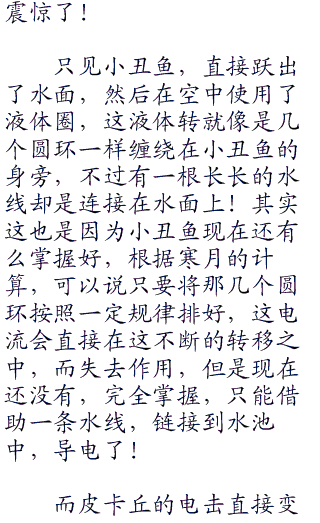 震惊了！
只见小丑鱼，直接跃出
了水面，然后在空中使用了
液体圈，这液体转就像是几
个圆环一样缠绕在小丑鱼的
身旁，不过有一根长长的水
线却是连接在水面上！其实
这也是因为小丑鱼现在还有
么掌握好，根据寒月的计
算，可以说只要将那几个圆
环按照一定规律排好，这电
流会直接在这不断的转移之
中，而失去作用，但是现在
还没有，完全掌握，只能借
助一条水线，链接到水池
中，导电了！
而皮卡丘的电击直接变